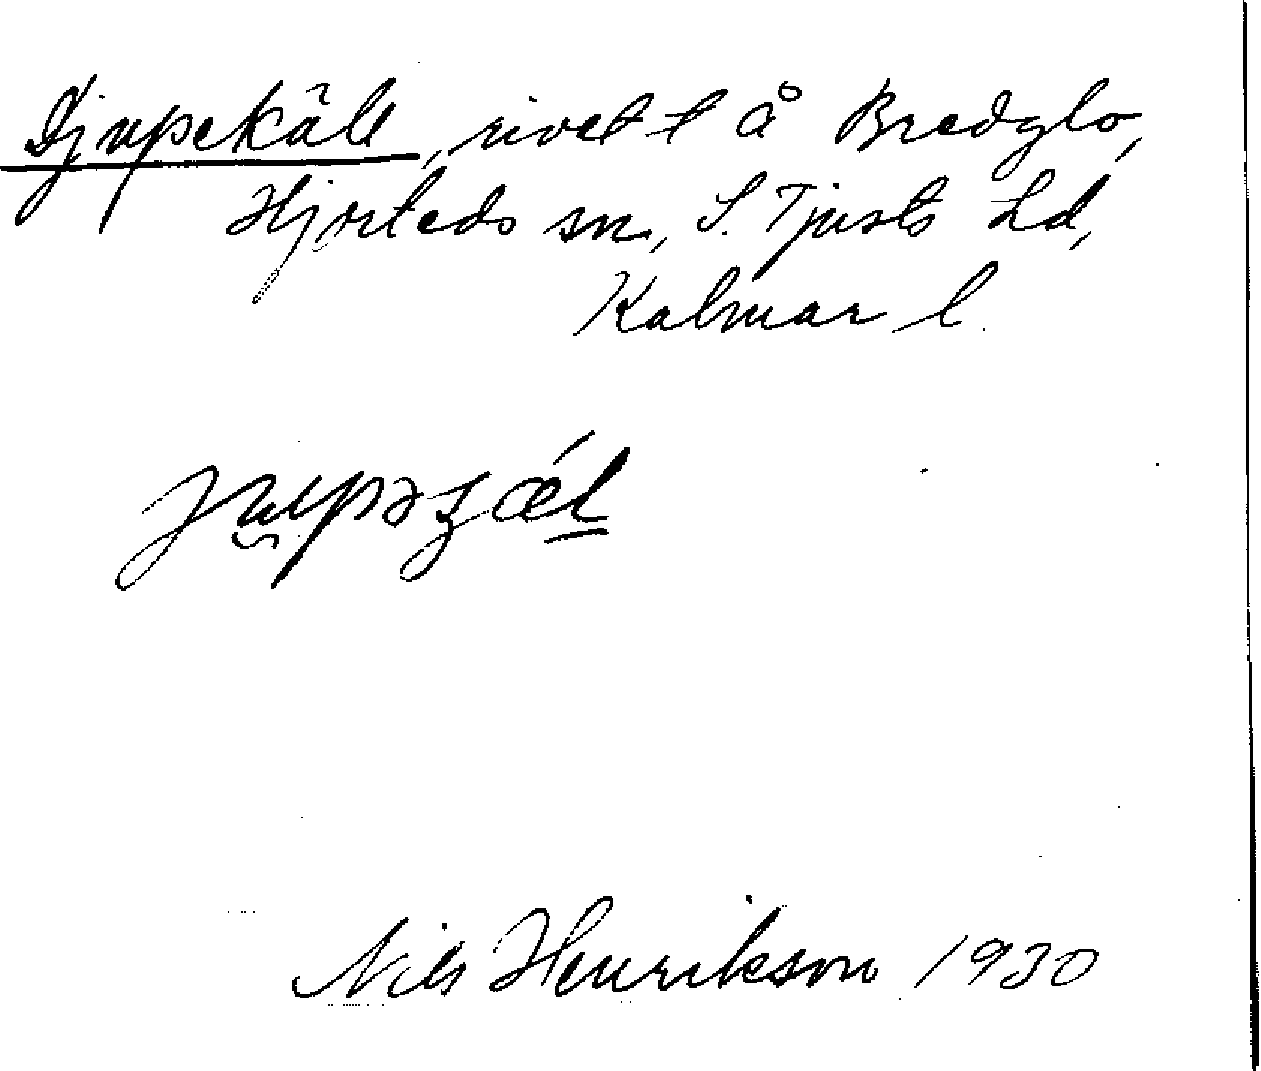 Djupekäll, rivet t å Bredglo,
Hjorteds sn, S. Tjusts hd,
Kalmar l.
Nils Henrikson 1930